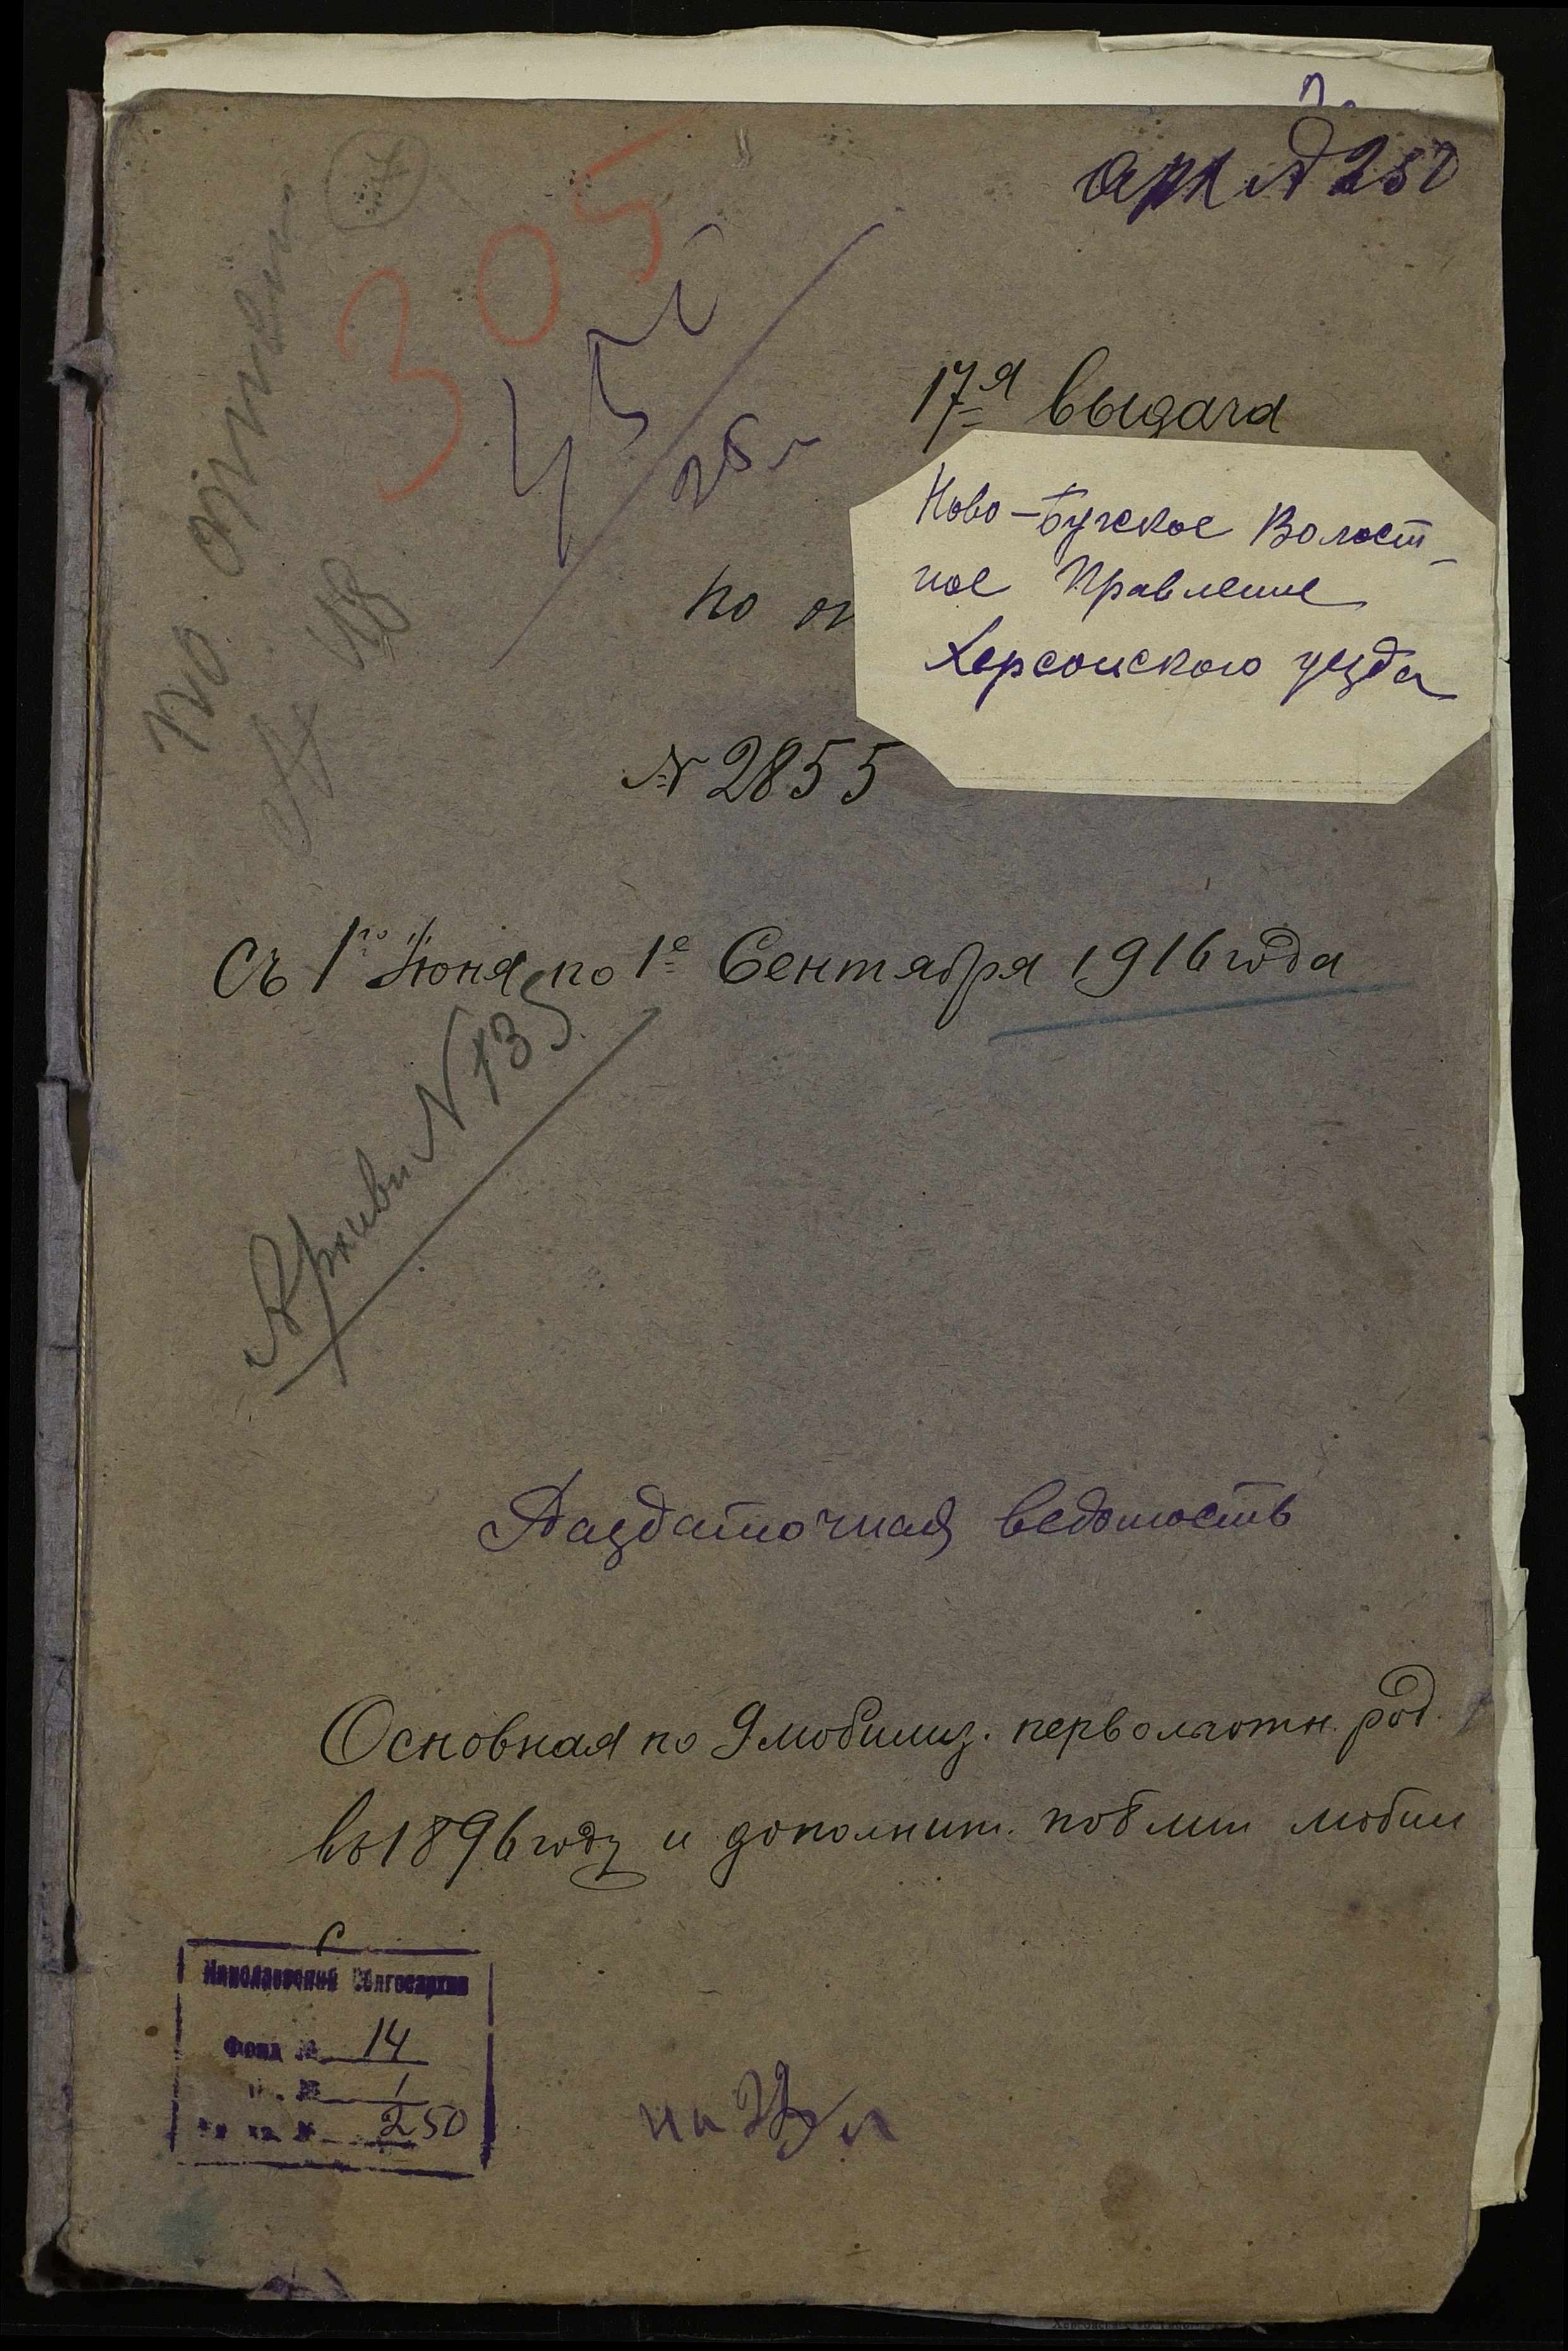 арх № 250
305
17-я выдача
Ново-Бугское Волост-
ное Правление
Херсонского уезда
по оп
№ 2855
Съ 1го Июня по 1е Сентября 1916 года
Архивн N 135
Раздаточная ведомость
Основная по 9 мобилиз. перволѣотн. род.
въ 1896 году и дополнит. по 8 ми мобил
Николаевский Облгосархив
Фонд № 14
№ 1
№ 250